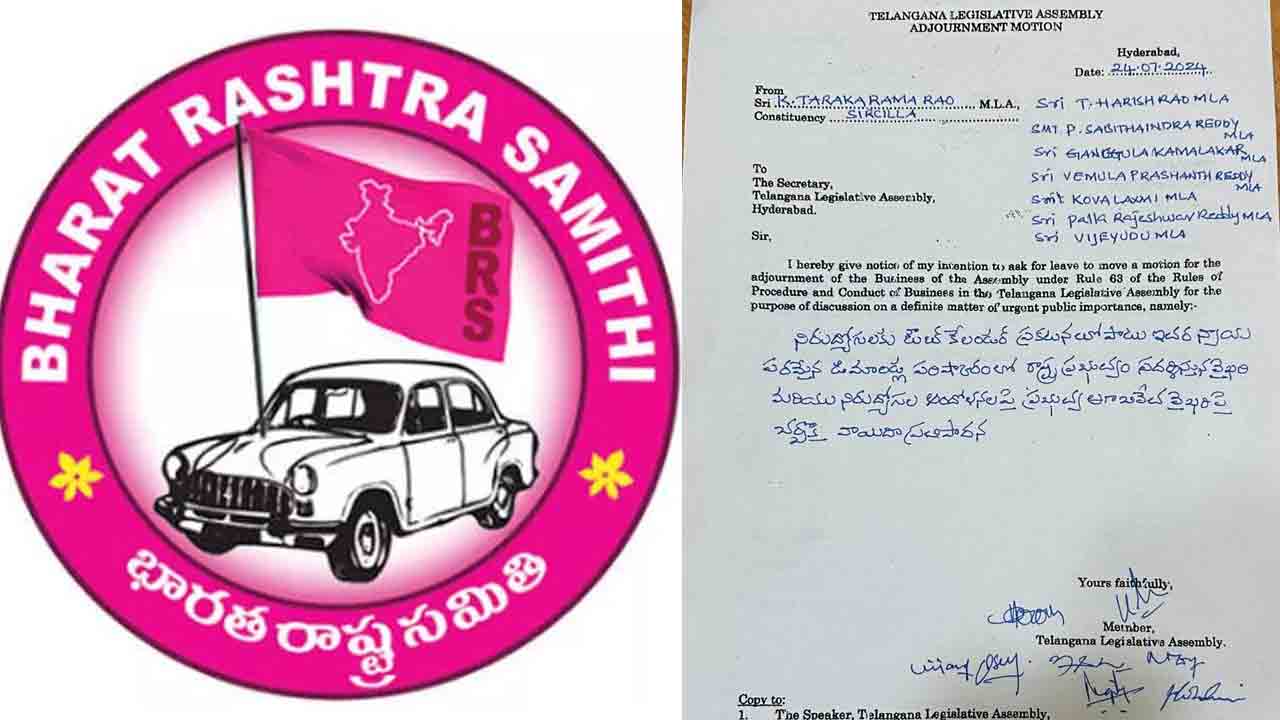 BHARAT RASHTRA SAMITHI
BRS
భారత రాష్ట్ర సమితి
TELANGANA LEGISLATIVE ASSEMBLY
ADJOURNMENT MOTION
Hyderabad,
Date: 24.07.2024
From
Sri K. TARAKA RAMA RAO M.L.A.,
Constituency SIRCILLA
Sri T. HARISH RAO MLA
SMT P. SABITHAINDRA REDDY MLA
Sri GANGGULA KAMALAKAR MLA
Sri VEMULA PRASHANTH REDDY MLA
Smt KOVA LAXMI MLA
Sri Palla Rajeshwar Reddy MLA
Sri VIJEYUDU MLA
To
The Secretary,
Telangana Legislative Assembly,
Hyderabad.
Sir,
I hereby give notice of my intention to ask for leave to move a motion for the
adjournment of the Business of the Assembly under Rule 63 of the Rules of
Procedure and Conduct of Business in the Telangana Legislative Assembly for the
purpose of discussion on a definite matter of urgent public importance, namely:-
నిరుద్యోగులకు జాబ్ కేలండర్ ప్రకటనతోపాటు ఇతర న్యాయ
పరమైన డిమాండ్ల పరిష్కారంలో రాష్ట్ర ప్రభుత్వం వైఖరి
మరియు నిరుద్యోగుల ఆందోళనలపై ప్రభుత్వ వైఖరిపై
చర్చకై వాయిదా ప్రతిపాదన
Yours faithfully,
Member,
Telangana Legislative Assembly.
Copy to:
1. The Speaker, Telangana Legislative Assembly,